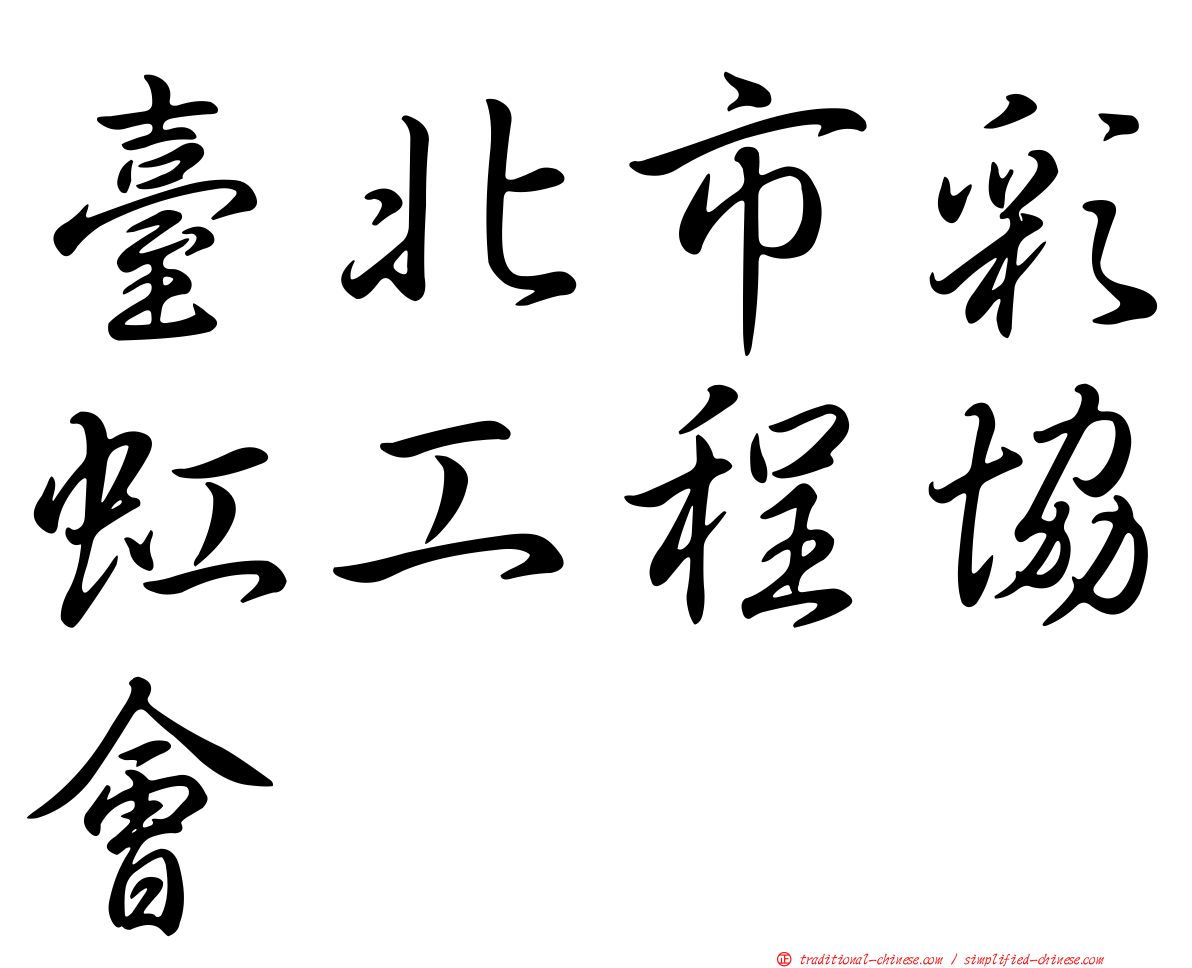 臺北市彩
虹工程協
會
正 traditional-chinese.com / simplified-chinese.com